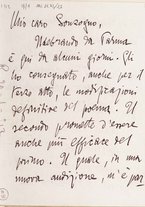 Mio caro Sonzogno,
Ildebrando da Parma
è qui da alcuni giorni. Gli
ho consegnato, anche per il
terzo atto, le modificazioni
definitive del poema. Il
secondo promette d'essere
anche più efficace del
primo. Il quale, in una
nuova audizione, m'è par